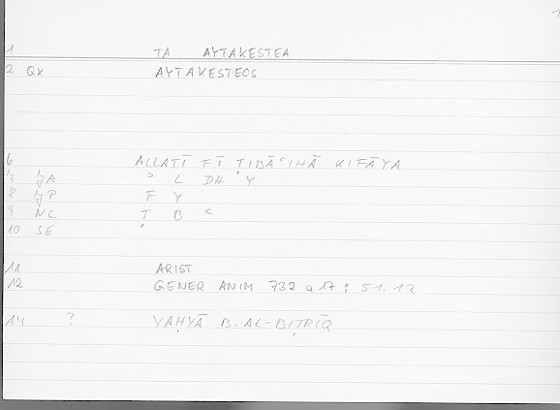 1 TA AYTAKESTEA
2 AYTAKESTEOS
6 ALLATĪ FĪ ṬIBĀʿIHĀ KIFĀYA
ʾ L DH Y
8 F Y
9 NC Ṭ B ʿ
10 SE
11 ARIST
12 GENER ANIM 732 a 17 ; 51.12
14 ? YAḤYĀ B. AL-BIṬRĪQ